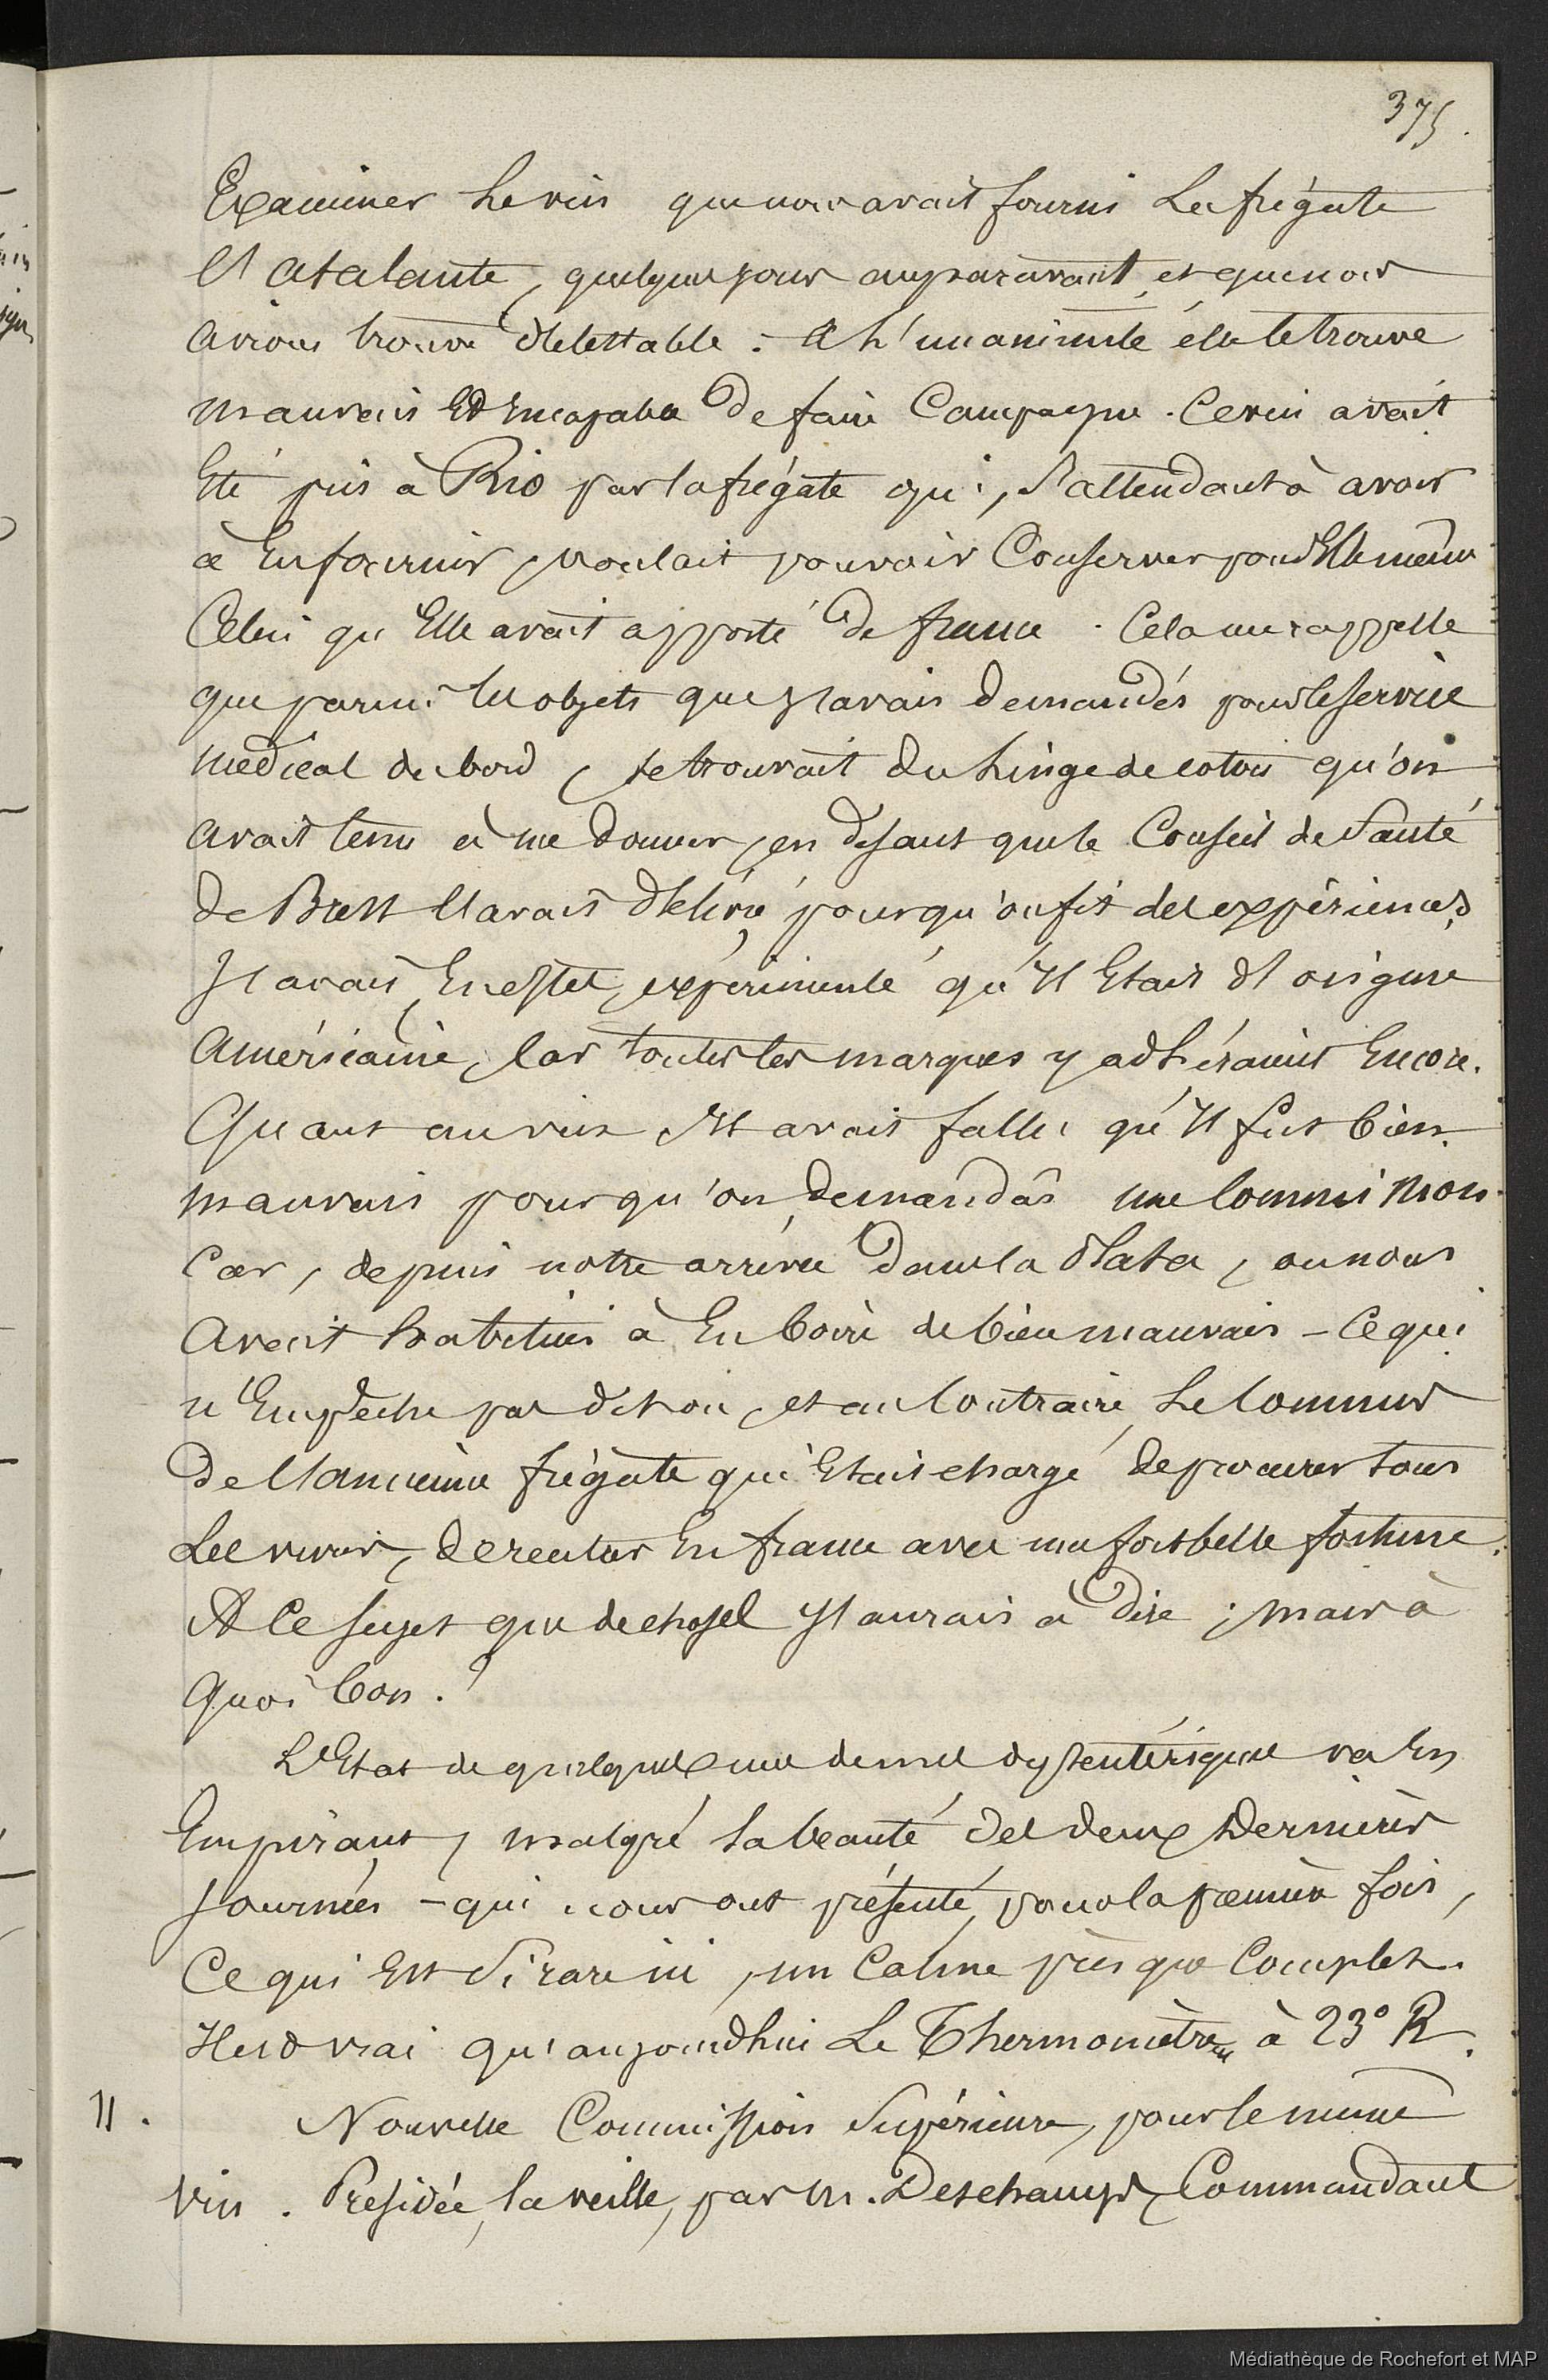 375.
Examiner le vin que nous avait fourni la frégate
l'atalante, quelques jours auparavant, et que nous
avions trouvé détestable. A l'unanimité elle le trouve
mauvais Et Incapable de faire Campagne. Ce vin avait
Eté pris à Rio par la frégate qui, s'attendant à avoir
à En fournir, voulait pouvoir Conserver pour Elle même
Celui qu'Elle avait apporté de france. Cela me rappelle
que parmi les objets que j'avais demandés pour le service
médical du bord, se trouvait du linge de coton qu'on
avait tenu à me donner, en disant que le Conseil de Santé
de Brest l'avait délivré pour qu'on fit des expériences.
J'avais, En effet, expérimenté qu'Il Etait d'origine
Américaine, Car toutes les marques y adhéraient Encore.
Quant au vin Il avait fallu qu'Il fut bien
mauvais pour qu'on demandât une Commission
Car, depuis notre arrivée dans la Plata, on nous
avait habitués à En boire de bien mauvais - Ce qui
n'Empêche pas dit-on, et au Contraire, le Commis
de l'ancienne frégate qui Etait chargé de procurer tous
les vivres, de rentrer En france avec une fort belle fortune.
A Ce sujet que de choses j'aurais à dire ; mais à
quoi bon ?
L'Etat de quelques uns de mes dysentériques va En
Empirant, malgré la beauté des deux dernières
journées - qui nous ont présenté, pour la première fois,
Ce qui Est si rare ici, un Calme presque Complet.
Il est vrai qu'aujourdhui le Thermomètre à 23° R.
11.
Nouvelle Commission Supérieure, pour le même
vin. Présidée, la veille, par M. Deschamps, Commandant
Médiathèque de Rochefort et MAP